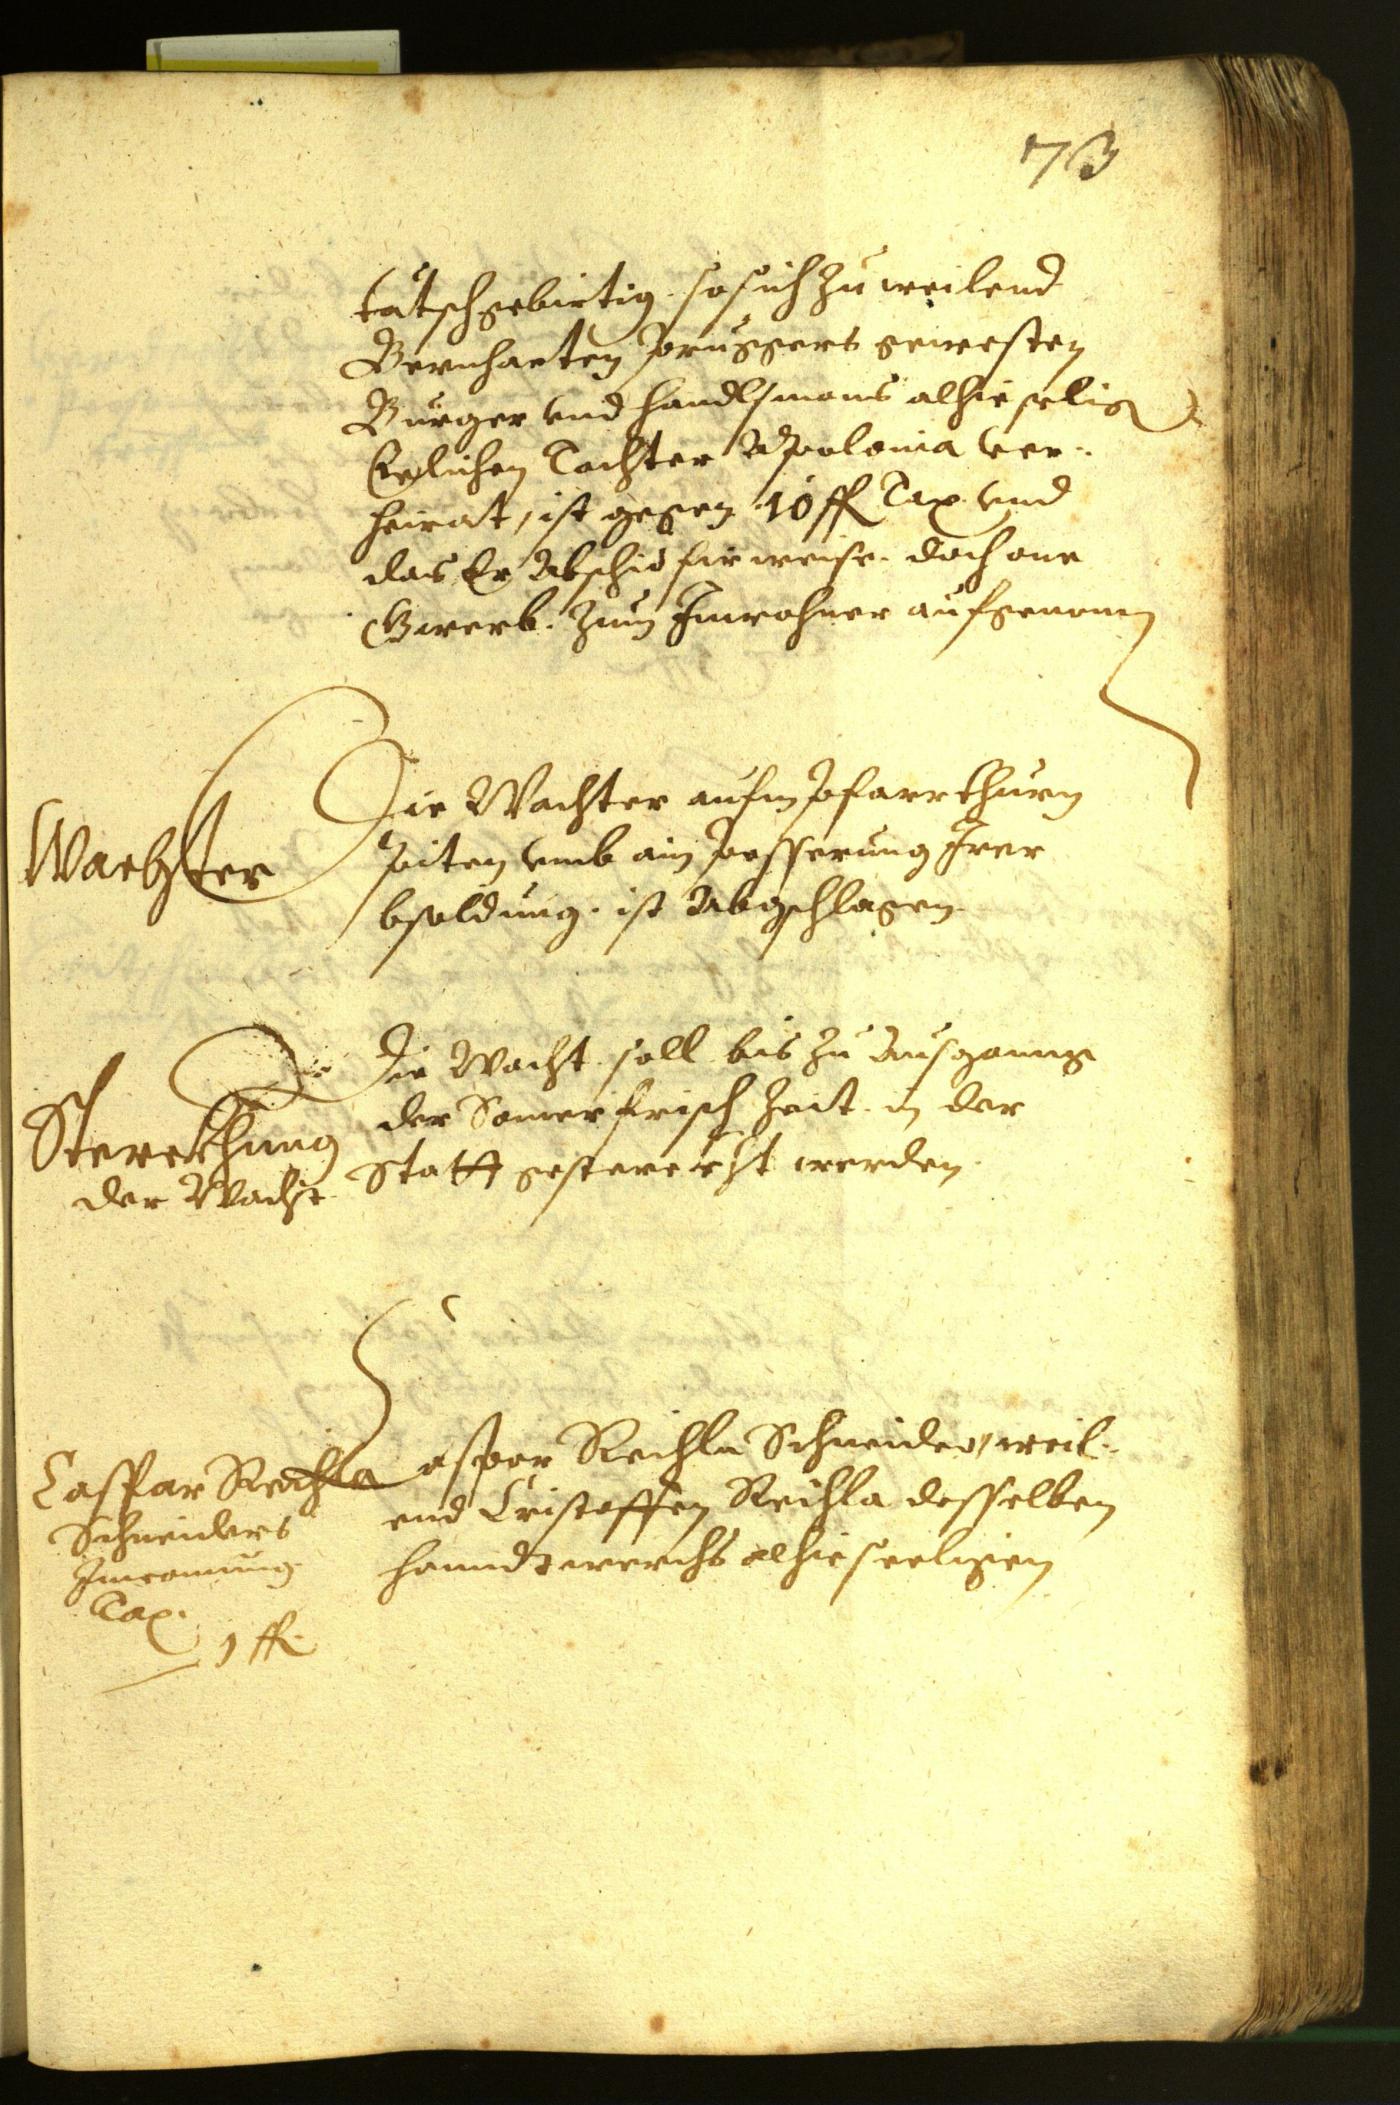 73
tätschgebirtig so sich zu weilend
Bernharten Pruggers gewesten
Burger vnd Handlsmans alhie selig
Eelichen Tochter Apolonia ver-
heirat, ist gegen 10 ff Tax vnd
das Er Abschid fürweise. doch one
Gwerb. zum Inwohner aufgenomen
Wachter
Die Wachter aufm Pfarrthurn
piten vmb ain Pesserung Irer
bsoldung. ist Abgschlagen
Sterckhung
der Wacht
Die Wacht soll bis zu Ausganng
der Somerfrisch Zeit in der
Statt gesterckht werden
Caspar Reichla
Schneiders
Innemung
Tax.
1 ff
Caspar Reichla Schneider, weil-
end Cristoffen Reichla desselben
Handtwerchs alhie seeligen